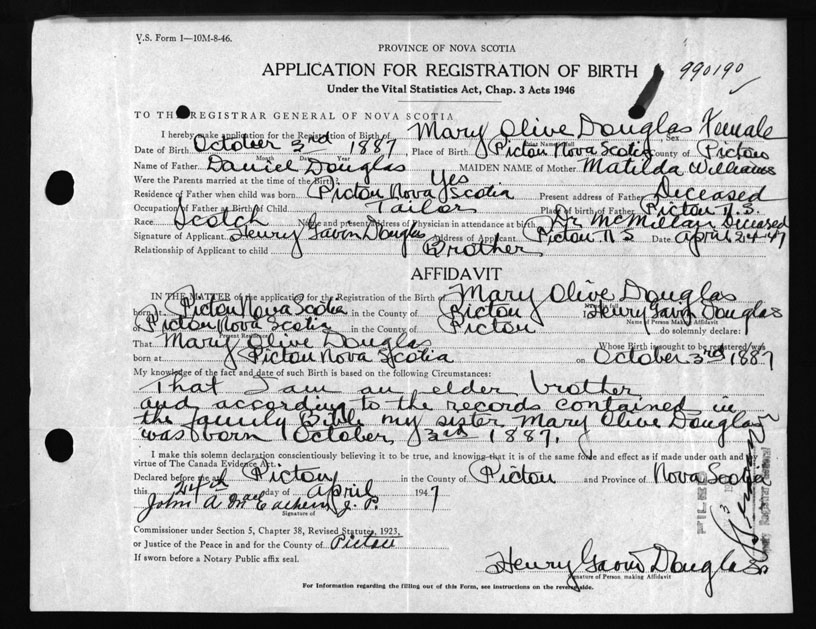 V.S. Form 1—10M-8-46.
PROVINCE OF NOVA SCOTIA
APPLICATION FOR REGISTRATION OF BIRTH 990190
Under the Vital Statistics Act, Chap. 3 Acts 1946
TO THE REGISTRAR GENERAL OF NOVA SCOTIA
I hereby make application for the Registration of Birth of Mary Olive Douglas Sex Female
Date of Birth October 3rd 1887 Place of Birth Picton Nova Scotia County of Picton
Month Date Year
Name of Father Daniel Douglas MAIDEN NAME of Mother Matilda Williams
Were the Parents married at the time of the Birth: Yes
Residence of Father when child was born Picton Nova Scotia Present address of Father Deceased
Occupation of Father at Birth of Child Tailor Place of birth of Father Picton N.S.
Race Scotch Name and present address of Physician in attendance at birth Dr McMillan Deceased
Signature of Applicant Henry Gavin Douglas Address of Applicant Picton N S Date April 24-47
Relationship of Applicant to child Brother
AFFIDAVIT
IN THE MATTER of the application for the Registration of the Birth of Mary Olive Douglas
born at Picton Nova Scotia in the County of Picton I Henry Gavin Douglas
Name of Person Making Affidavit
of Picton Nova Scotia in the County of Picton do solemnly declare:
That Mary Olive Douglas Whose Birth is sought to be registered was
born at Picton Nova Scotia on October 3rd 1887
My knowledge of the fact and date of such Birth is based on the following Circumstances:
That I am an elder brother
and according to the records contained in
the family Bible my sister Mary Olive Douglas
was born October 3rd 1887.
I make this solemn declaration conscientiously believing it to be true, and knowing that it is of the same force and effect as if made under oath and by
virtue of The Canada Evidence Act.
Declared before me at Picton in the County of Picton and Province of Nova Scotia
this 24th day of April 1947
John A. J.P.
Signature of
Commissioner under Section 5, Chapter 38, Revised Statutes, 1923,
or Justice of the Peace in and for the County of Picton
If sworn before a Notary Public affix seal.
FILED
Henry Gavin Douglas
Signature of Person making Affidavit
For Information regarding the filling out of this Form, see instructions on the reverse side.